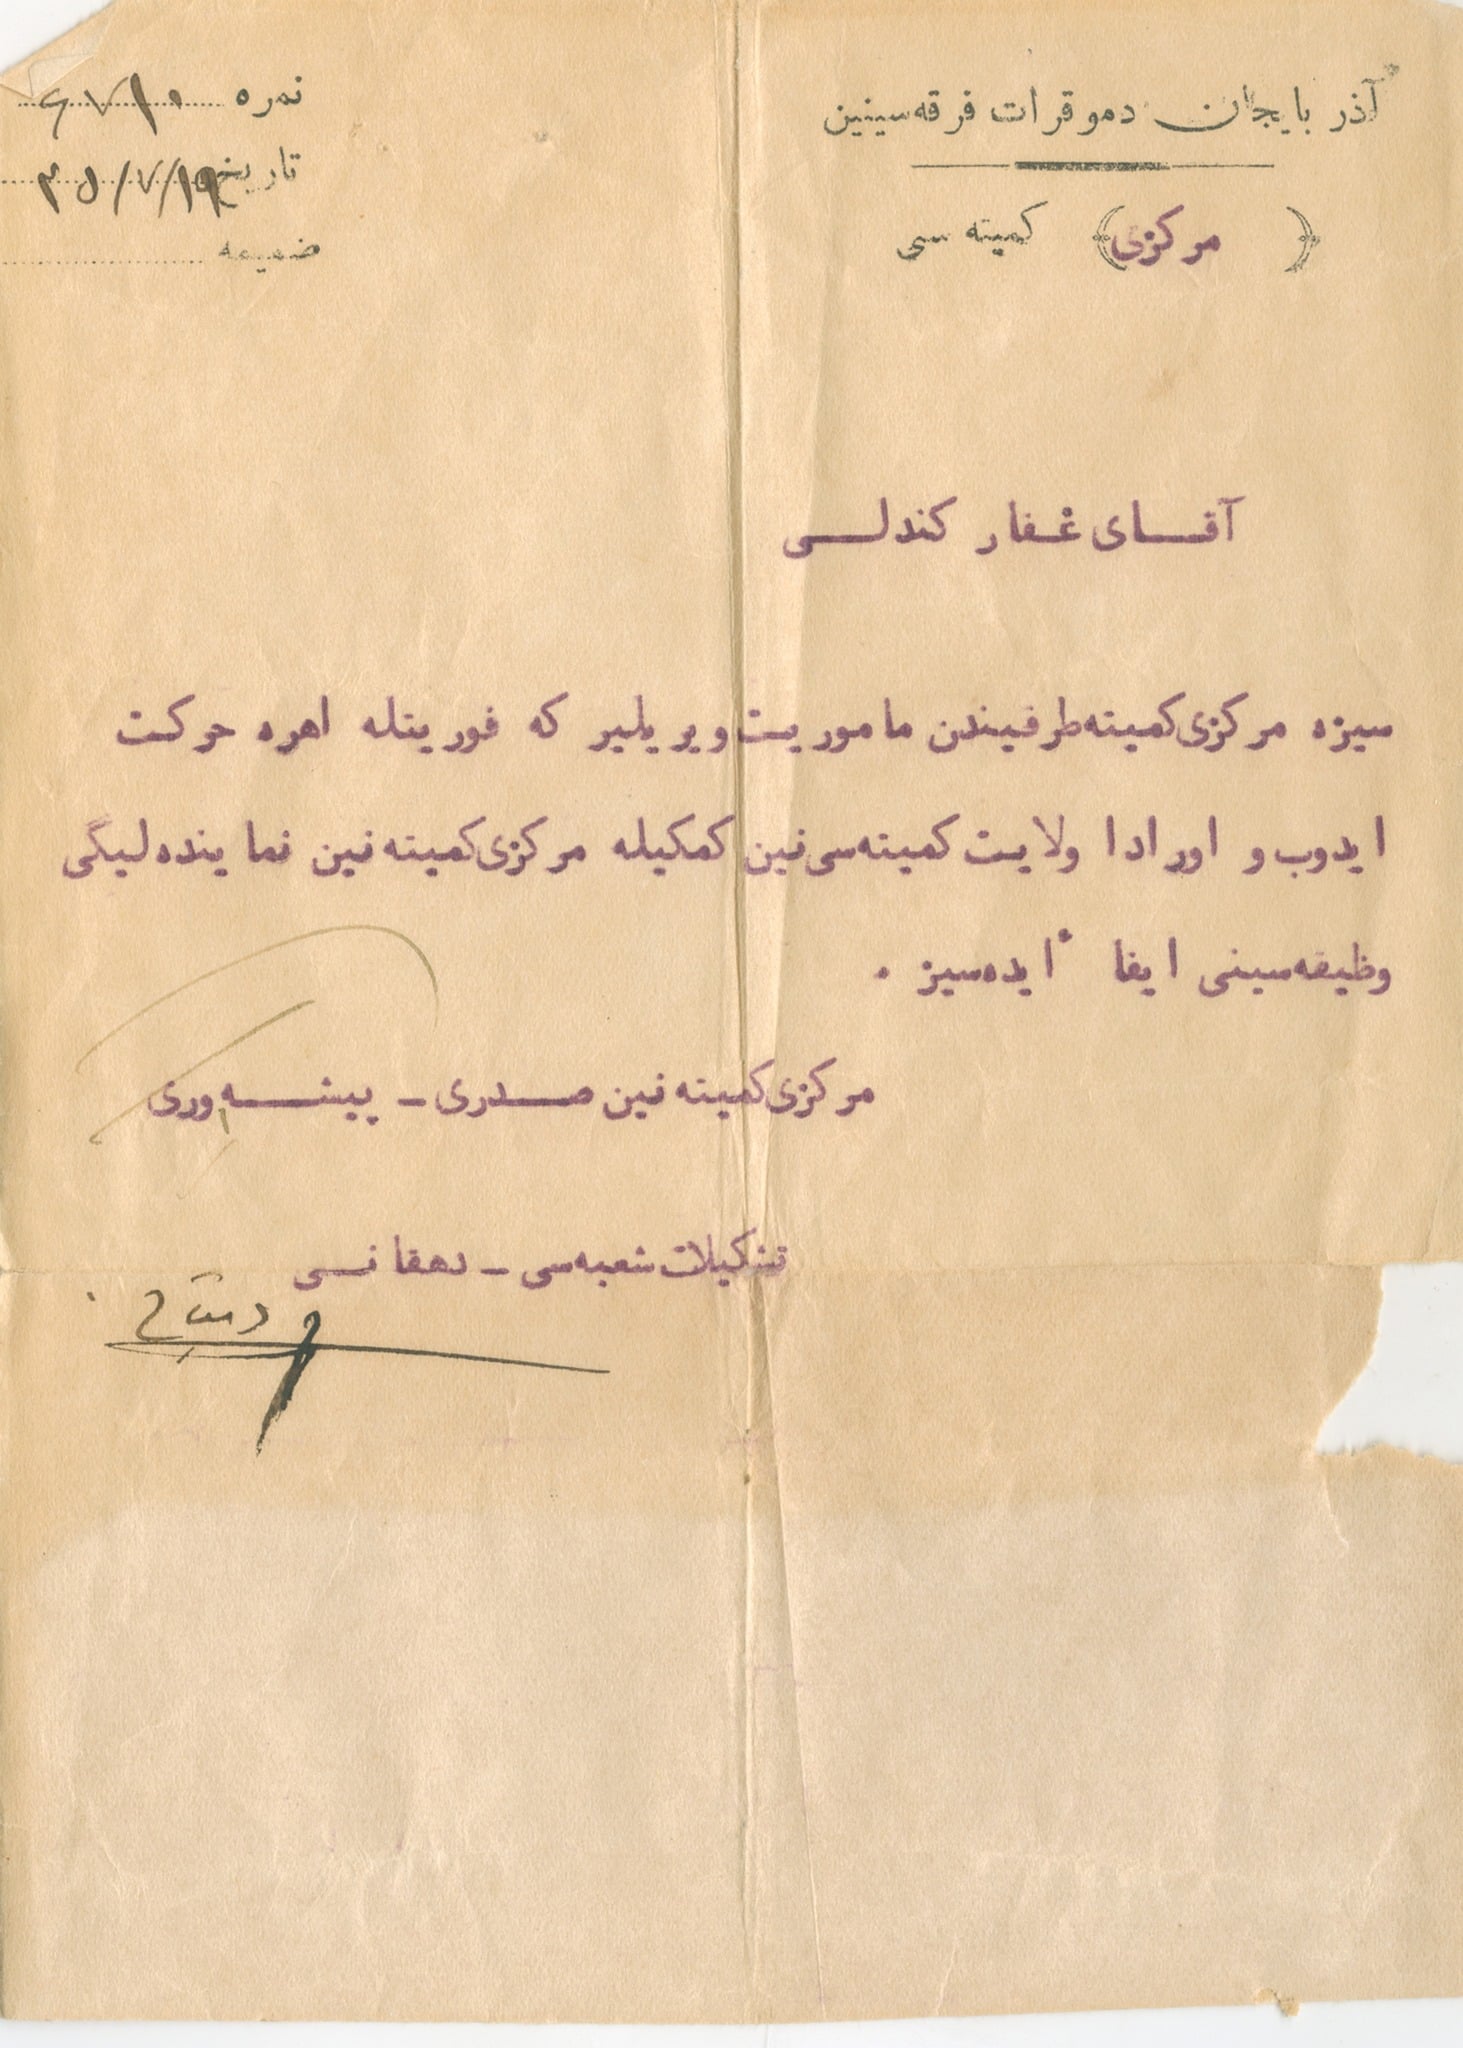 آذربایجان دموقرات فرقه‌سینین
(مرکزی) کمیته سی
نمره
تاریخ ۲۵/۷/۱۹
ضمیمه
آقـای غفار کندلـی
سیزه مرکزی کمیته طرفیندن ماموریت ویریلیر که فوریتله اهره حرکت
ایدوب و اورادا ولایت کمیته‌سی‌نین کمکیله مرکزی کمیته نین نماینده لیگی
وظیفه‌سینی ایفا ایده‌سیز .
مرکزی کمیته نین صـدری ـ پیشـه وری
تشکیلات شعبه‌سی ـ دهقانـی